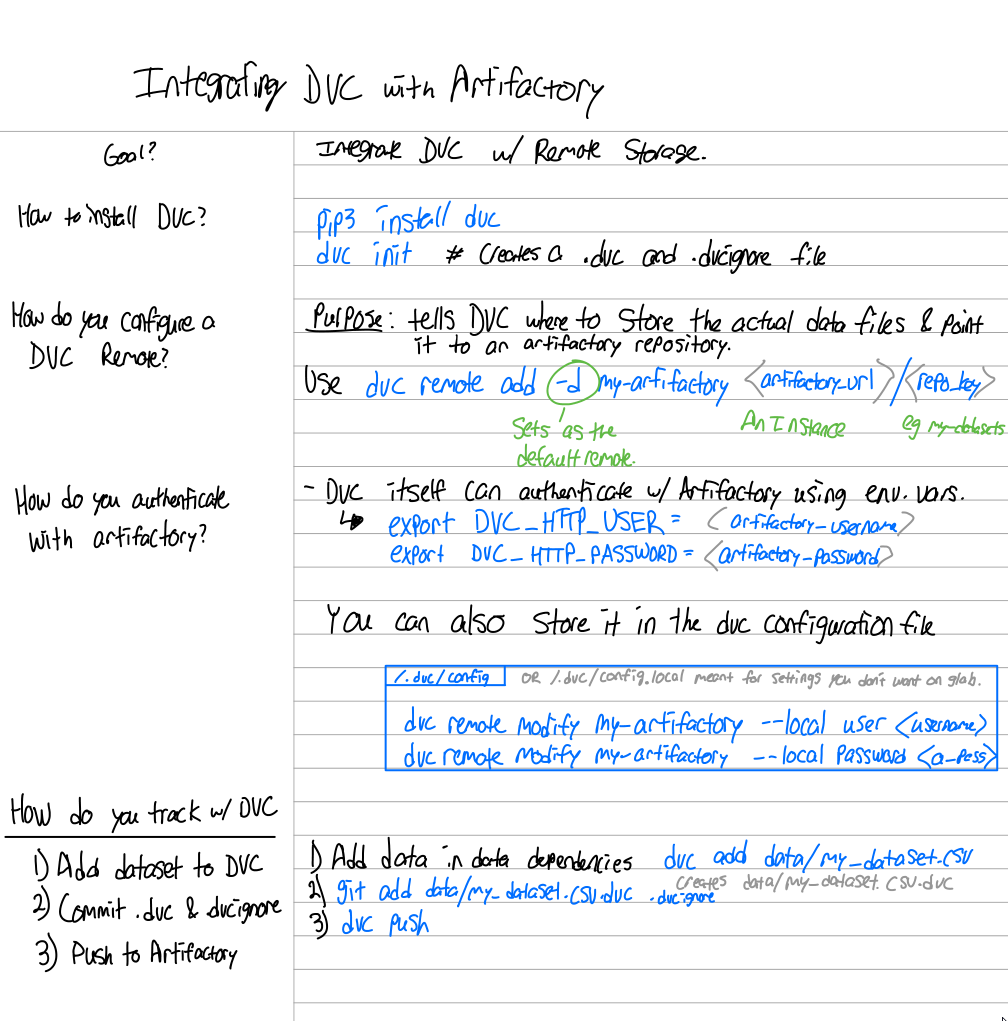 Integrating DVC with Artifactory
Goal?
Integrate DVC w/ Remote Storage.
How to install DVC?
pip3 install dvc
dvc init # Creates a .dvc and .dvcignore file
How do you configure a
DVC Remote?
Purpose: tells DVC where to store the actual data files & point
it to an artifactory repository.
Use dvc remote add -d my-artifactory <artifactory_url>/<repo_key>
Sets as the
default remote.
An Instance
eg my-datasets
How do you authenticate
with artifactory?
- DVC itself can authenticate w/ Artifactory using env. vars.
↳ export DVC_HTTP_USER = <artifactory-username>
export DVC_HTTP_PASSWORD = <artifactory-password>
You can also store it in the dvc configuration file
/.dvc/config OR /.dvc/config.local meant for settings you don't want on glab.
dvc remote modify my-artifactory --local user <username>
dvc remote modify my-artifactory --local password <a-pass>
How do you track w/ DVC
1) Add dataset to DVC
2) Commit .dvc & dvcignore
3) Push to Artifactory
1) Add data in data dependencies dvc add data/my_dataset.csv
creates data/my_dataset.csv.dvc
2) git add data/my_dataset.csv.dvc .dvcignore
3) dvc push